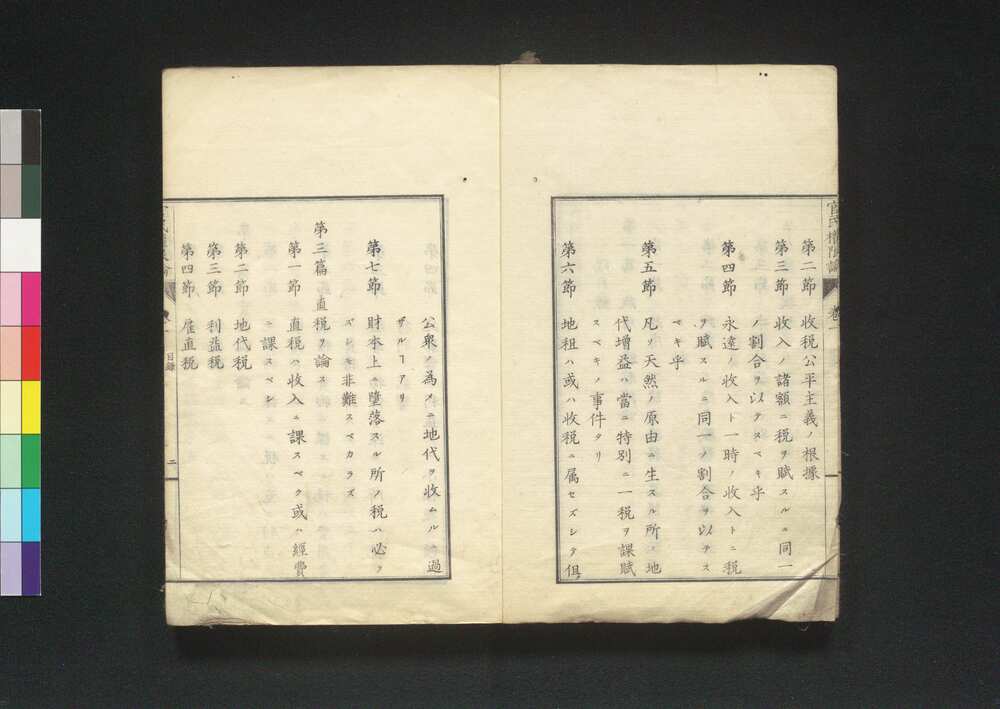 第二節 收税公平主義ノ根據
第三節 收入ノ諸額ニ税ヲ賦スルニ同一
ノ割合ヲ以テスベキ乎
第四節 永遠ノ收入ト一時ノ收入トニ税
ヲ賦スルニ同一ノ割合ヲ以テス
ベキ乎
第五節 凡ソ天然ノ原由ニ生スル所ノ地
代增益ハ當ニ特別ニ一税ヲ課賦
スベキノ事件タリ
第六節 地租ハ或ハ收税ニ属セズシテ但
公衆ノ為メニ地代ヲ收ムルニ過
ザルヿアリ
第七節 財本上ニ墮落スル所ノ税ハ必ラ
ズシモ非難スベカラズ
第三篇 直税ヲ論ス
第一節 直税ハ收入ニ課スベク或ハ經費
ニ課スベシ
第二節 地代税
第三節 利益税
第四節 雇直税
目錄
二